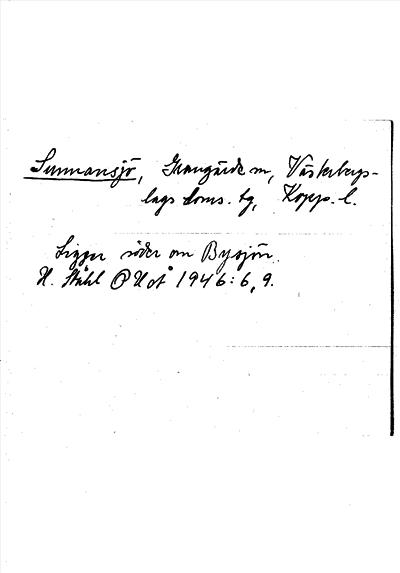 Sunnansjö, Grangärde sn, Västerbergs-
lags doms. tg, Kopp. l.
Ligger söder om Bysjön.
H. Ståhl OUoÅ 1946: 6, 9.